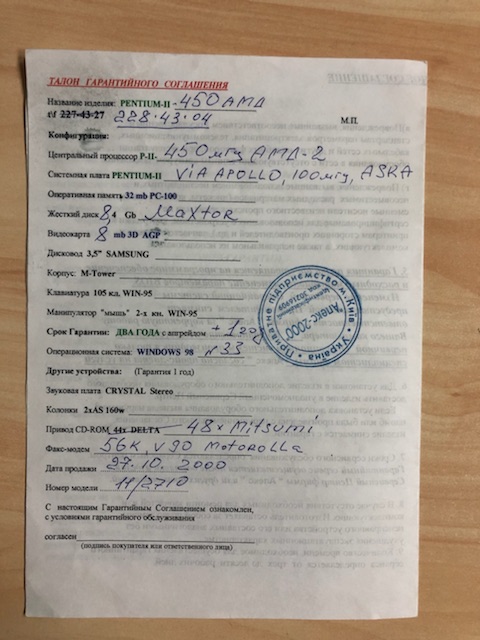 ТАЛОН ГАРАНТИЙНОГО СОГЛАШЕНИЯ
Название изделия: PENTIUM-II - 450 АМД
т/ф 227-43-27 228-43-04
М.П.
Конфигурация:
Центральный процессор P-II- 450 мгц АМД-2
Системная плата PENTIUM-II VIA APOLLO, 100мгц, ASKA
Оперативная память 32 mb PC-100
Жесткий диск 8,4 Gb Maxtor
Видеокарта 8 mb 3D AGP
Дисковод 3,5" SAMSUNG
Корпус M-Tower
Клавиатура 105 кл. WIN-95
Манипулятор "мышь" 2-х кн. WIN-95
Срок Гарантии: ДВА ГОДА с апгрейдом + 1 год
Операционная система: WINDOWS 98 №33
Другие устройства: (Гарантия 1 год)
Звуковая плата CRYSTAL Stereo
Колонки 2xAS 160w
Привод CD-ROM 44x DELTA 48x Mitsumi
Факс-модем 56K, V90 Motorolla
Дата продажи 27.10.2000
Номер модели 11/2710
С настоящим Гарантийным Соглашением ознакомлен,
с условиями гарантийного обслуживания
согласен
(подпись покупателя или ответственного лица)
Приватне підприємство м.Київ
Україна
Алекс-2000